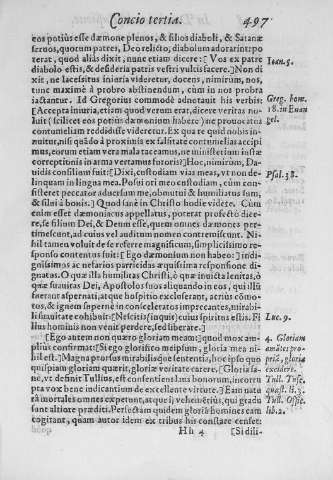 Concio tertia. 497
eos potius esse dæmone plenos, & filios diaboli, & Satanæ
seruos, quorum patrei, Deo relicto, diabolum adorarint potius
erat, quod aliàs dixit, nunc etiam dicere: [Vos ex patre
diabolo estis, & desideria patris vestri vultis facere.] Non di
xit, ne lacessitus iniuria videretur, docens, nimirum, nos,
tunc maximè à probro abstinendum, cùm in nos probra
iactantur. Id Gregorius commodè adnotauit his verbis
[Accepta iniuria, etiam quod verum erat, dicere veritas no-
luit (scilicet eos potius dæmonium habere) ne prouocatus
contumeliam reddidisse videretur. Ex qua re quid nobis in-
nuitur, nisi quòd à proximis ex falsitate contumelias accipi
mus, eorum etiam vera mala taceamus, ne ministerium iustæ
correptionis in arma vertamus furoris?] Hoc, nimirum, Da-
uidis consilium fuit: [Dixi, custodiam vias meas, vt non de-
linquam in lingua mea. Posui ori meo custodiam, cùm con-
sisteret peccator aduersum me, obmutui & humiliatus sum,
& silui à bonis.] Quod sanè in Christo hodie videre. Cùm
enim esset dæmoniacus appellatus, poterat profectò dice-
re, se filium Dei, & Deum esse, quem omnes dæmones per-
timescunt, ad cuius vel auditum nomen contremiscunt. Ni-
hil tamen voluit de se referre magnificum, simplicissimo re-
sponso contentus fuit: [Ego dæmonium non habeo:] indi-
gnissimas ac nefarias parricidas æquissima responsione di-
gnatus. O quæ illa humilitas Christi, ò quæ inuicta lenitas, ò
quæ suauitas Dei, Apostolos suos aliquando in eos, qui illū
fuerant aspernati, atque hospitio excluserant, acriùs cōmo-
tos, & igneum supernè in consceleratos imprecantes, mirabi-
li suauitate cohibuit: [Nescitis (inquit) cuius spiritus estis. Fi
lius hominis non venit perdere, sed liberare.]
[Ego autem non quæro gloriam meam:] quod mox am-
pliùs confirmat: [Si ego glorifico meipsum, gloria mea ni-
hil est.] Magna prorsus mirabilisque sententia, hoc ipso quo
quispiam gloriam quærit, gloriæ veritate carere. [Gloria sa-
nè, vt definit Tullius, est consentiens laus bonorum, incorru
pta vox benè iudicantium de excellente virtute:] Eam natu
râ mortales omnes expetunt, atque ij vehementiùs, qui gradu
sunt altiore præditi. Perfectam quidem gloriā homines cùm
cogitant, quam autor idem ex tribus his constare censet:
Hh 4 [Si dili-
Ioan. 8.
Greg. hom.
18. in Euan
gel.
Psal. 38.
Luc. 9.
4. Gloriam
amātes pro-
priè, gloria
excidere.
Tull. Tusc.
quæst. li. 3.
Tull. Offic.
lib. 2.